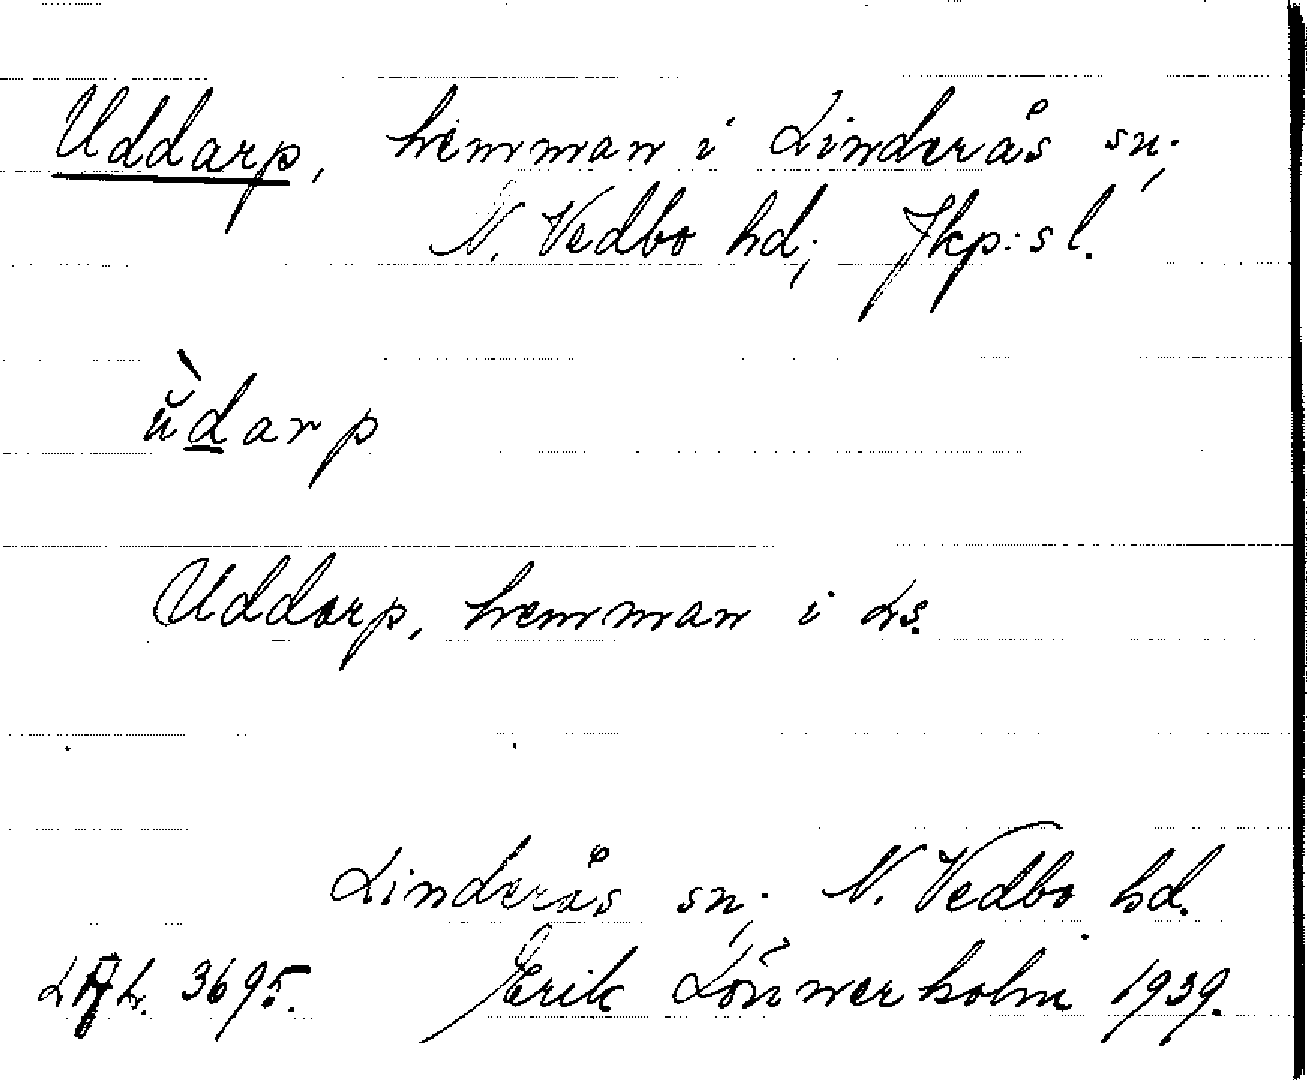 Uddarp, hemman i Linderås sn.,
N. Vedbo hd., Jkp:s l.
ŭ̀darp
Uddarp, hemman i Ls.
Linderås sn., N. Vedbo hd.
3695. Erik Lönnerholm 1939.